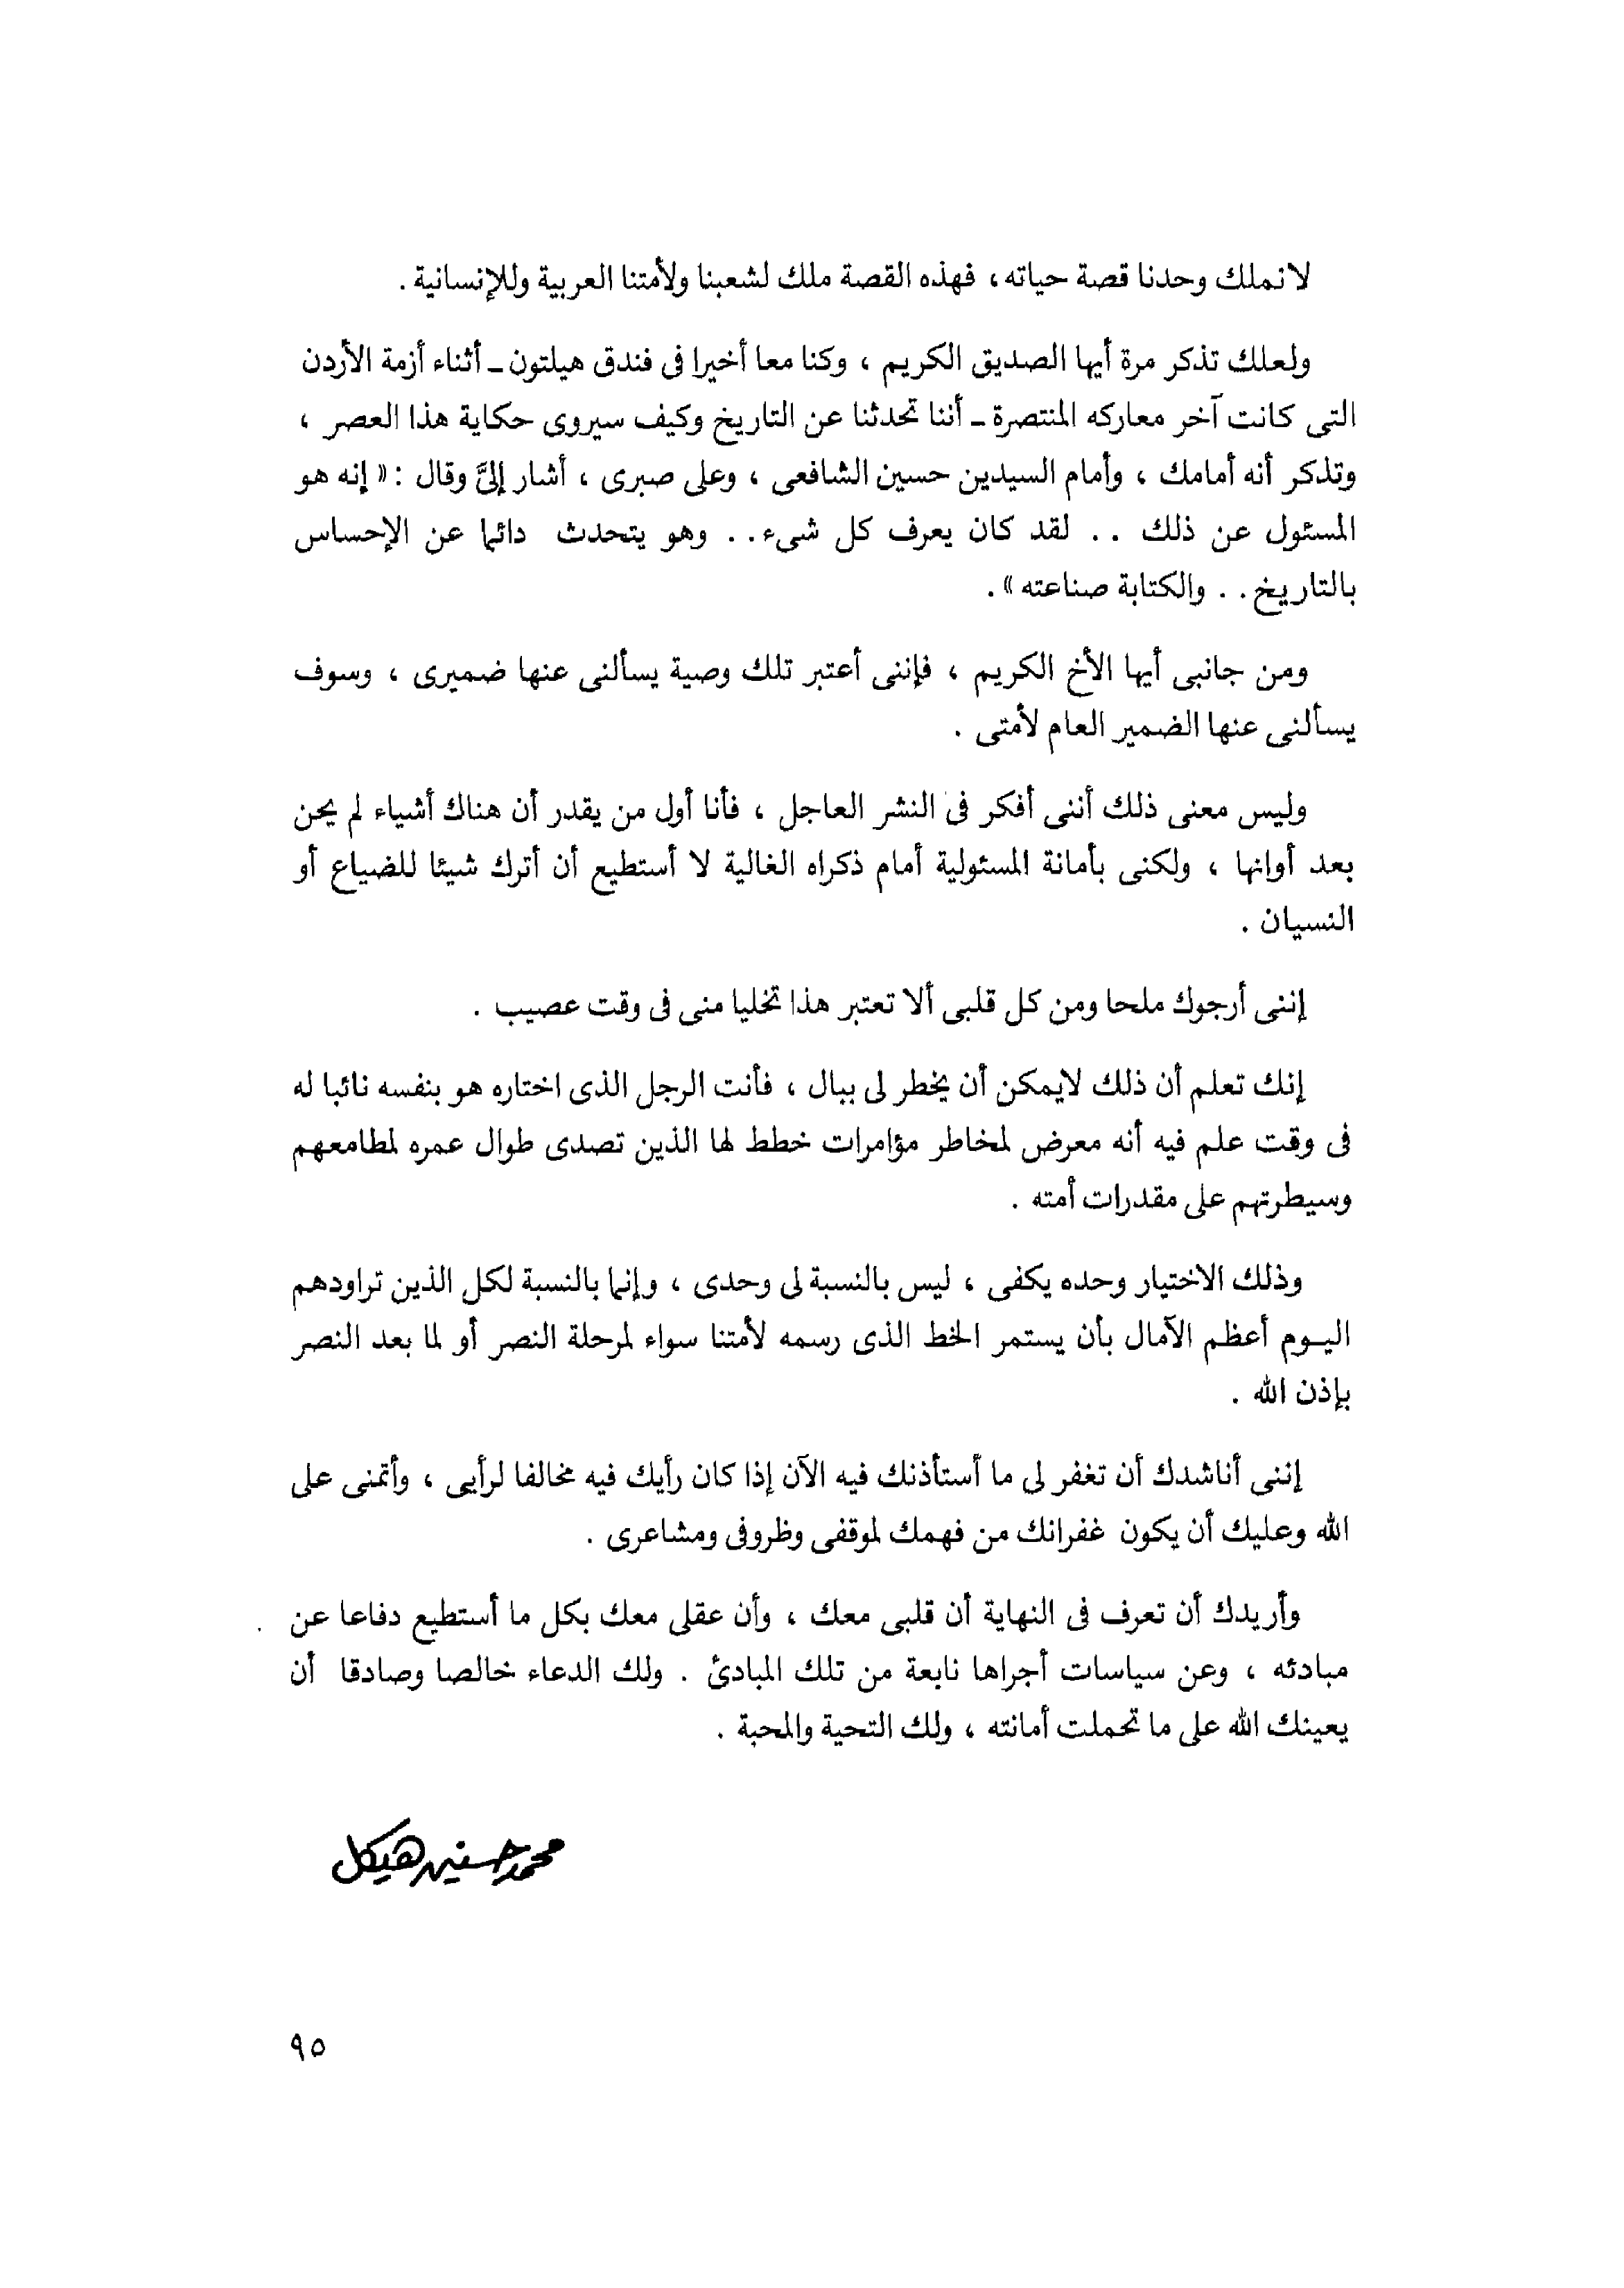 لانملك وحدنا قصة حياته ، فهذه القصة ملك لشعبنا ولأمتنا العربية وللإنسانية .
ولعلك تذكر مرة أيها الصديق الكريم ، وكنا معا أخيرا فى فندق هيلتون ـ أثناء أزمة الأردن
التى كانت آخر معاركه المنتصرة ـ أننا تحدثنا عن التاريخ وكيف سيروى حكاية هذا العصر ،
وتذكر أنه أمامك ، وأمام السيدين حسين الشافعى ، وعلى صبرى ، أشار إلىَّ وقال : « إنه هو
المسئول عن ذلك . . لقد كان يعرف كل شىء . . وهو يتحدث دائما عن الإحساس
بالتاريخ . . والكتابة صناعته » .
ومن جانبى أيها الأخ الكريم ، فإننى أعتبر تلك وصية يسألنى عنها ضميرى ، وسوف
يسألنى عنها الضمير العام لأمتى .
وليس معنى ذلك أننى أفكر فى النشر العاجل ، فأنا أول من يقدر أن هناك أشياء لم يحن
بعد أوانها ، ولكنى بأمانة المسئولية أمام ذكراه الغالية لا أستطيع أن أترك شيئا للضياع أو
النسيان .
إننى أرجوك ملحا ومن كل قلبى ألا تعتبر هذا تخليا منى فى وقت عصيب .
إنك تعلم أن ذلك لايمكن أن يخطر لى ببال ، فأنت الرجل الذى اختاره هو بنفسه نائبا له
فى وقت علم فيه أنه معرض لمخاطر مؤامرات خطط لها الذين تصدى طوال عمره لمطامعهم
وسيطرتهم على مقدرات أمته .
وذلك الاختيار وحده يكفى ، ليس بالنسبة لى وحدى ، وإنما بالنسبة لكل الذين تراودهم
اليوم أعظم الآمال بأن يستمر الخط الذى رسمه لأمتنا سواء لمرحلة النصر أو لما بعد النصر
بإذن الله .
إننى أناشدك أن تغفر لى ما أستأذنك فيه الآن إذا كان رأيك فيه مخالفا لرأيى ، وأتمنى على
الله وعليك أن يكون غفرانك من فهمك لموقفى وظروفى ومشاعرى .
وأريدك أن تعرف فى النهاية أن قلبى معك ، وأن عقلى معك بكل ما أستطيع دفاعا عن
مبادئه ، وعن سياسات أجراها نابعة من تلك المبادئ . ولك الدعاء خالصا وصادقا أن
يعينك الله على ما تحملت أمانته ، ولك التحية والمحبة .
محمد حسنين هيكل
٩٥